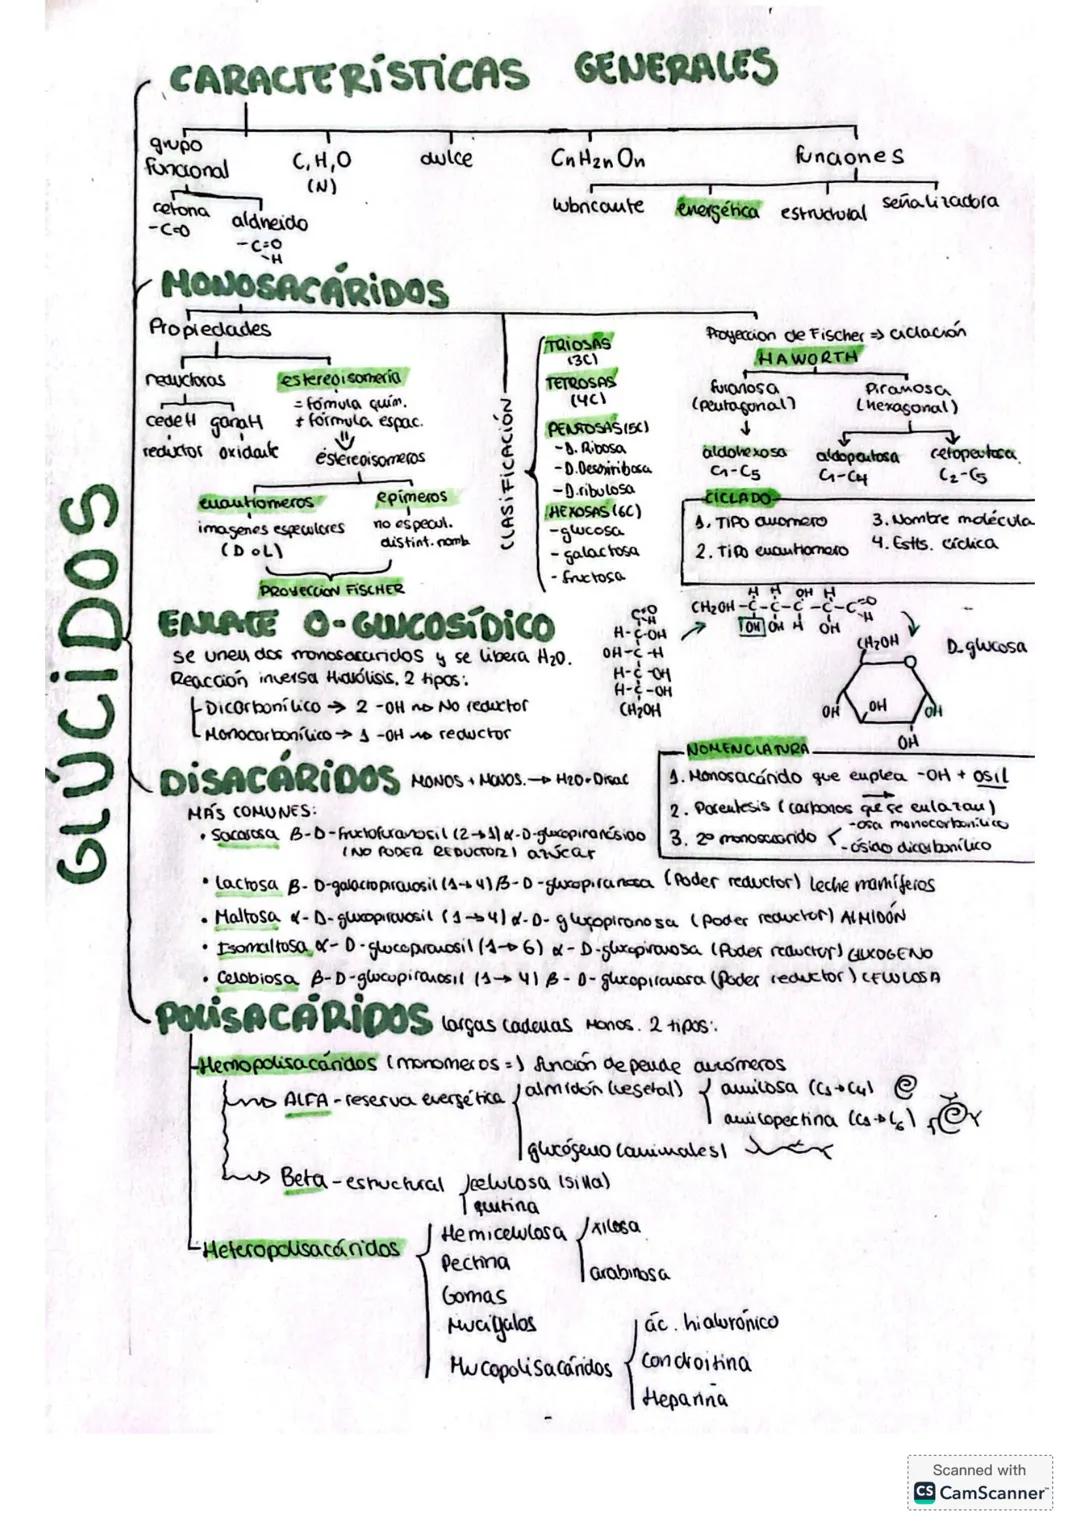 GLÚCIDOS
CARACTERÍSTICAS GENERALES
grupo funcional
cetona
-C=O
aldheido
-C=O
-H
C, H, O
(N)
dulce
CnH2nOn
funciones
lubricante
energética
estructural
señalizadora
MONOSACÁRIDOS
Propiedades
reductoras
cede H
reductor
gana H
oxidante
estereoisomería
= fórmula quím.
≠ fórmula espac.
estereoisomeros
enantiomeros
imagenes especulares
(D o L)
epímeros
no especul.
distint. nomb
PROYECCIÓN FISCHER
CLASIFICACIÓN
TRIOSAS
(3C)
TETROSAS
(4C)
PENTOSAS (5C)
-D. Ribosa
-D. Desoxiribosa
-D. ribulosa
HEXOSAS (6C)
-glucosa
- galactosa
- fructosa
Proyeccion de Fischer ⇒ ciclación
HAWORTH
furanosa
(pentagonal)
↓
aldohexosa
C1-C5
Piranosa
(hexagonal)
aldopentosa
C1-C4
cetopentosa
C2-C5
CICLADO
1. TIPO anomero
2. TIPO enantiomero
3. Nombre molécula
4. Estts. cíclica
C=O
H
H-C-OH
OH-C-H
H-C-OH
H-C-OH
CH2OH
H H OH H
CH2OH-C-C-C-C-C=O
H
OH OH H OH
D-glucosa
CH2OH
OH
OH
OH
OH
ENLACE O-GLUCOSÍDICO
se unen dos monosacaridos y se libera H2O.
Reacción inversa Hidrólisis. 2 tipos:
Dicarbonílico → 2 -OH ⇝ No reductor
Monocarbonílico → 1 -OH ⇝ reductor
NOMENCLATURA
1. Monosacárido que emplea -OH + OSIL
2. Parentesis (carbonos que se enlazan)
3. 2º monosacarido
-osa monocarbonílico
-ósido dicarbonílico
DISACÁRIDOS MONOS + MONOS. → H2O + Disac
MÁS COMUNES:
• Sacarosa β-D-fructofuranosil (2→1) α-D-glucopiranósido
(NO PODER REDUCTOR) azúcar
• Lactosa β-D-galactopiranosil (1→4) β-D-glucopiranosa (Poder reductor) leche mamíferos
• Maltosa α-D-glucopiranosil (1→4) α-D-glucopiranosa (poder reductor) ALMIDÓN
• Isomaltosa α-D-glucopiranosil (1→6) α-D-glucopiranosa (Poder reductor) GLUCOGENO
• Celobiosa β-D-glucopiranosil (1→4) β-D-glucopiranosa (Poder reductor) CELULOSA
POLISACÁRIDOS largas cadenas monos. 2 tipos:
Hemopolisacáridos (monomeros =) función depende anómeros
ALFA - reserva energética
almidón (vegetal)
amilosa (C1→C4)
amilopectina (C1→C6)
glucógeno (animales)
Beta - estructural
celulosa (silla)
quitina
Heteropolisacáridos
Hemicelulosa
xilosa
arabinosa
Pectina
Gomas
Mucígalos
Mucopolisacáridos
ác. hialurónico
Condroitina
Heparina
Scanned with
CS CamScanner